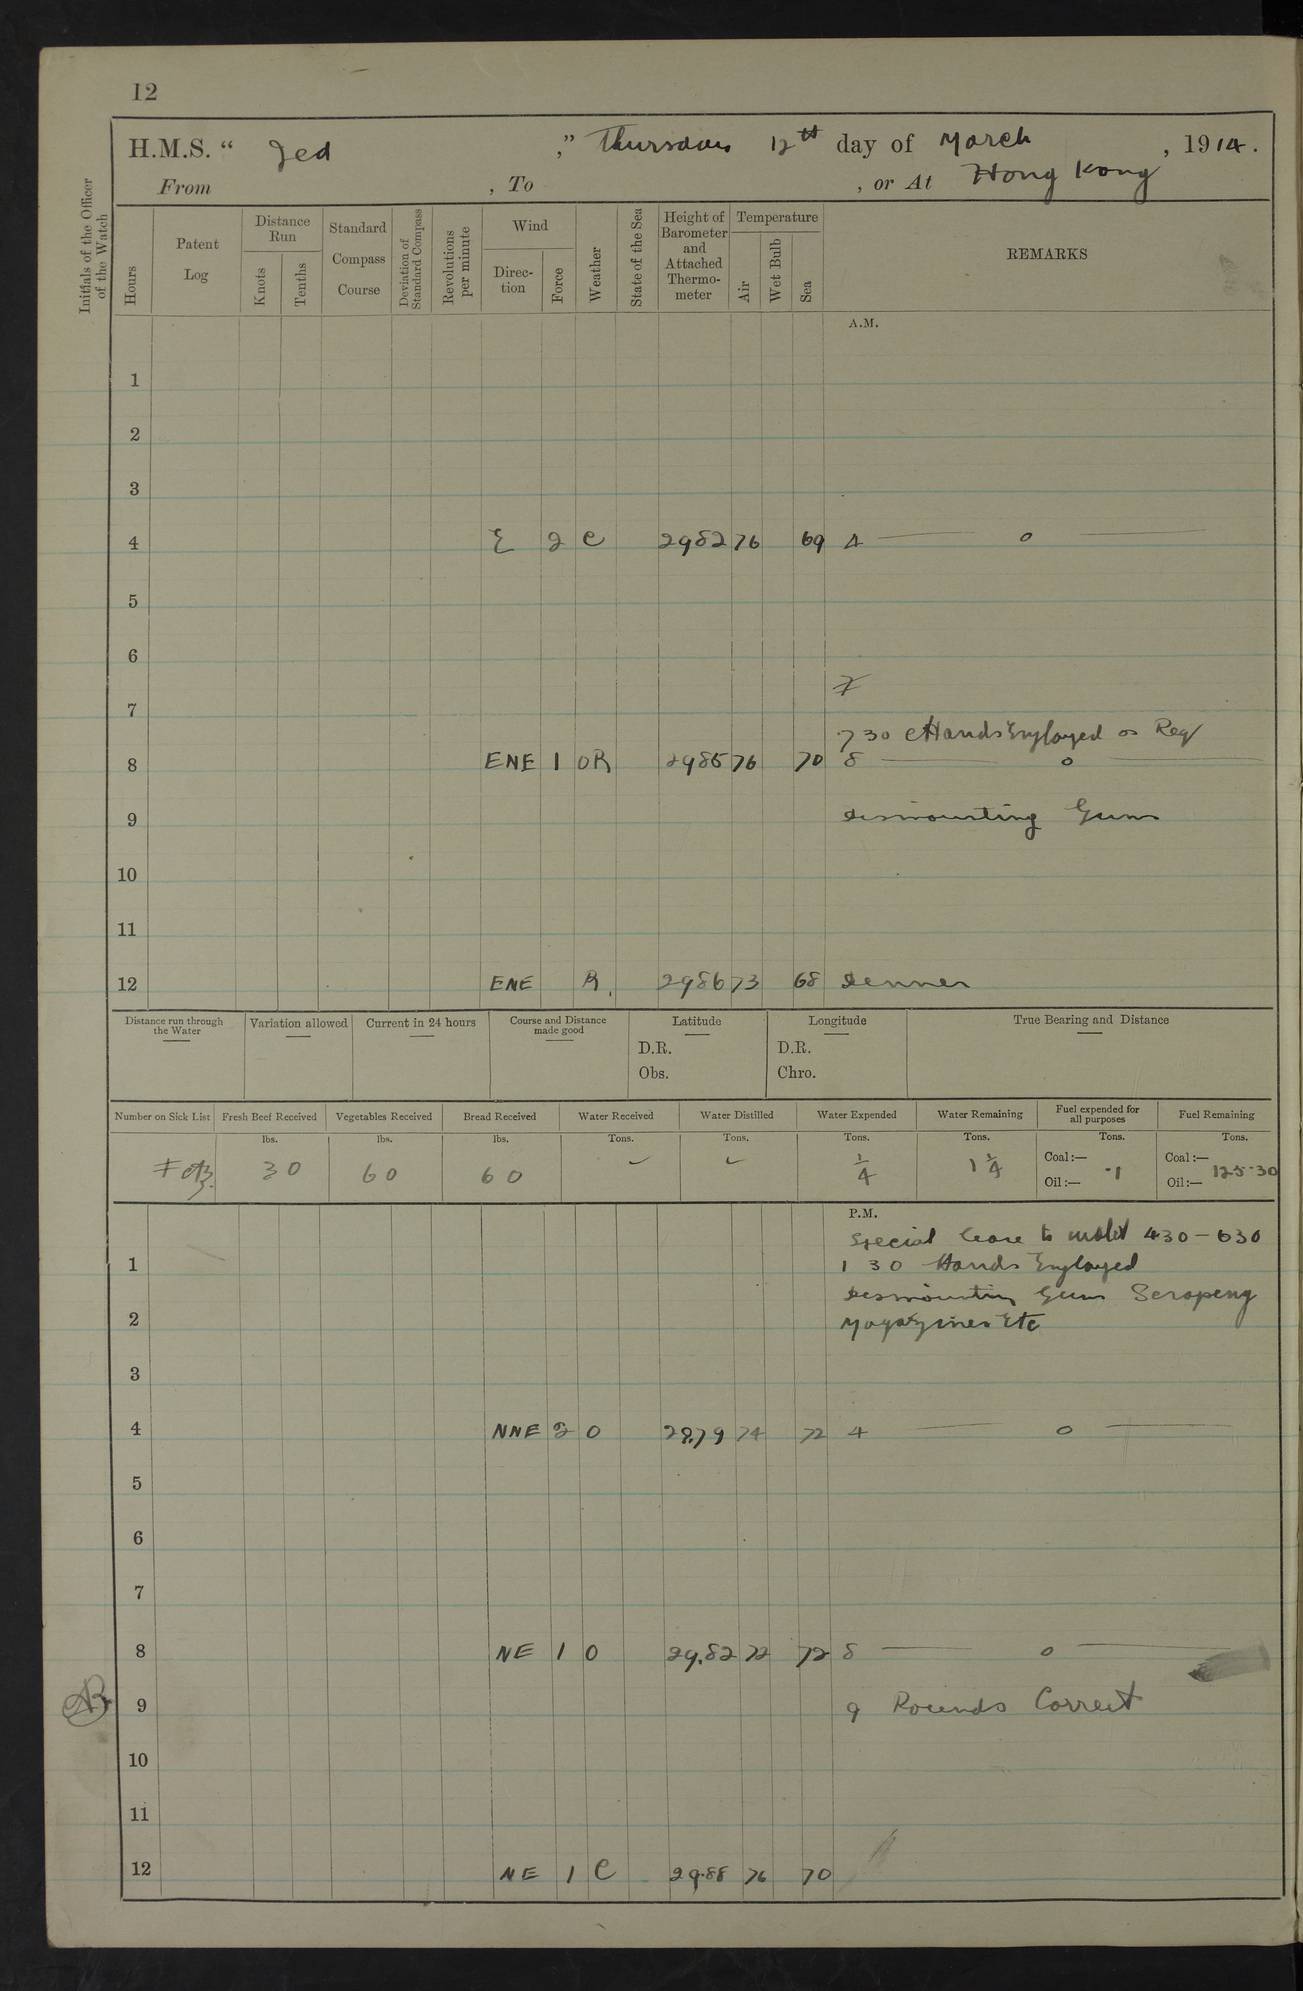 12
H.M.S. “ Jed ,” Thursday 12th day of March , 1914.
From , To , or At Hong Kong
Initials of the Officer of the Watch
Hours
Patent Log
Distance Run
Knots
Tenths
Standard Compass Course
Deviation of Standard Compass
Revolutions per minute
Wind
Direction
Force
Weather
State of the Sea
Height of Barometer and Attached Thermometer
Temperature
Air
Wet Bulb
Sea
REMARKS
A.M.
1
2
3
4 E 2 C 2982 76 69 4 — 0 —
5
6
7
7 30 Hands Employed as Req
8 ENE 1 OR 2985 76 70 8 — 0 —
9 Dismounting Guns
10
11
12 ENE R. 2986 73 68 Dinner
Distance run through the Water
Variation allowed
Current in 24 hours
Course and Distance made good
Latitude
D.R.
Obs.
Longitude
D.R.
Chro.
True Bearing and Distance
Number on Sick List
Fresh Beef Received lbs. 30
Vegetables Received lbs. 60
Bread Received lbs. 60
Water Received Tons. ✓
Water Distilled Tons. ✓
Water Expended Tons. 1/4
Water Remaining Tons. 1 3/4
Fuel expended for all purposes Tons.
Coal:—
Oil:— ·1
Fuel Remaining Tons.
Coal:— 125·30
Oil:—
P.M.
Special leave to 430 – 630
1 1 30 Hands Employed
Dismounting Guns Scraping
2 Magazines Etc
3
4 NNE 2 O 29.79 74 72 4 — 0 —
5
6
7
8 NE 1 O 29.82 72 72 8 — 0 —
9 9 Rounds Correct
10
11
12 NE 1 C 29.88 76 70